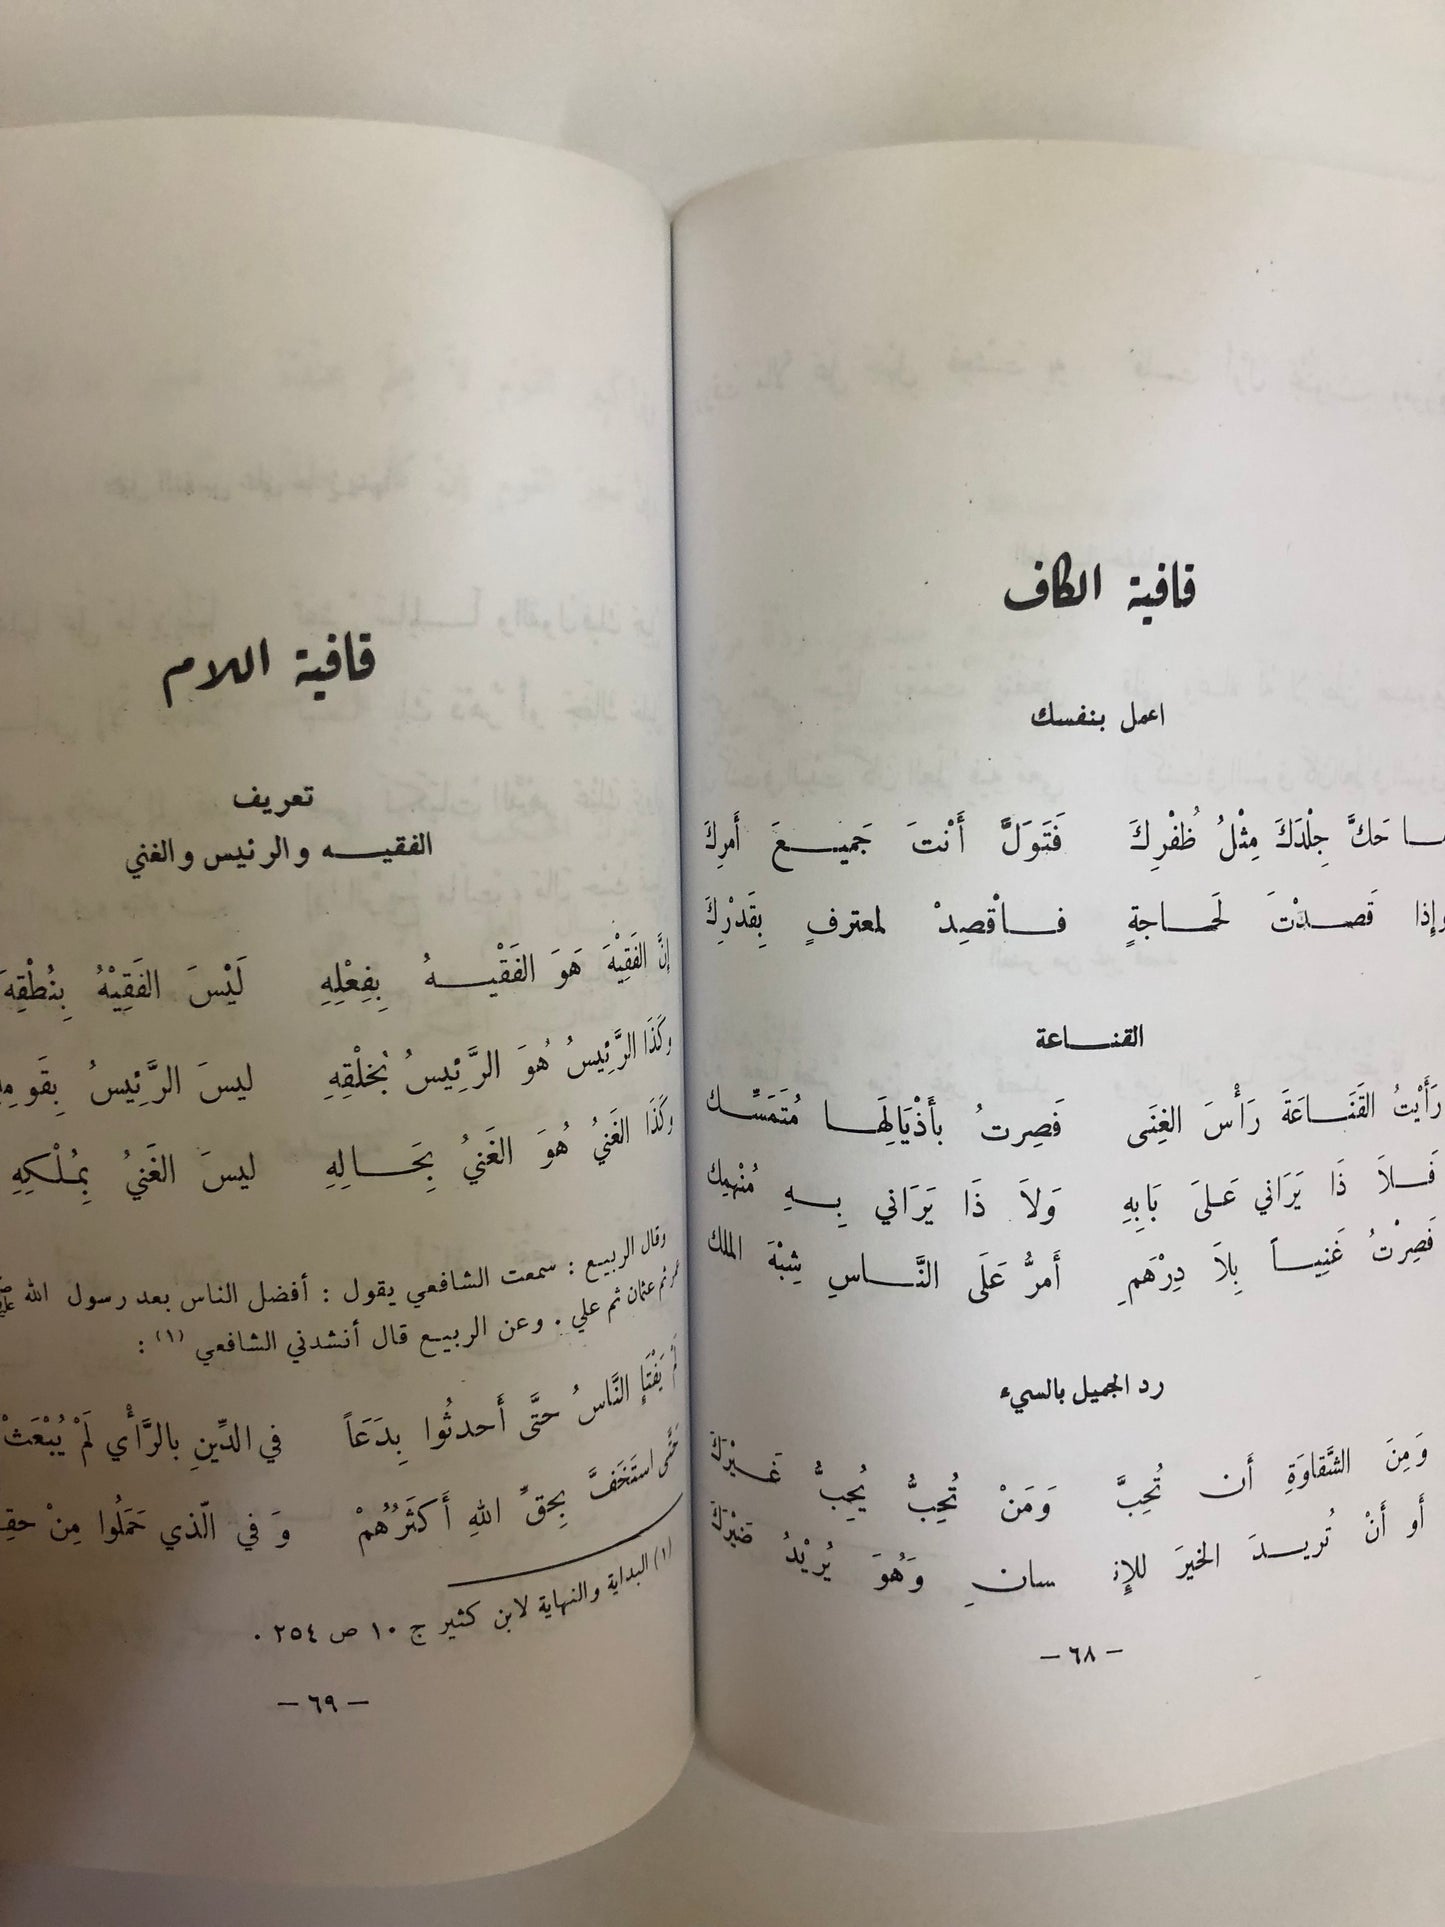 قافية الكاف
اعمل بنفسك
ما حَكَّ جِلْدَكَ مِثْلُ ظُفْرِكَ فَتَوَلَّ أَنْتَ جَميـــعَ أَمرِكَ
وإِذا قَصـدْتَ لَحـــاجةٍ فـــاْقصِدْ لمعترفٍ بِقَدْرِكَ
القنـــاعة
رَأَيْتُ القَنَـــاعَةَ رَأْسَ الغِنَى فَصِرتُ بأَذْيَالِهَـــا مُتَمَسِّـك
فَـــلاَ ذَا يَرَاني عَـلىَ بَابِهِ وَلاَ ذَا يَرَاني بِـــهِ مُنْهمِك
فَصِرْتُ غَنِيـــاً بِلاَ دِرْهَمِ أَمرُّ عَلَى النَّـــاسِ شِبْهَ الملك
رد الجميل بالسيء
وَمِنَ الشَّقاوَةِ أَن تُحِبَّ وَمَنْ تُحِبُّ يُحِبُّ غَـــيْرَكَ
أَو أَنْ تُريـدَ الخيرَ للإِنـ سانِ وَهُوَ يُرِيْدُ ضَيْرَكَ
– ٦٨ –
قافية اللام
تعريف
الفقيـــه والرئيس والغني
إنَّ الفَقِيْهَ هَوَ الفَقْيـــهُ بِفِعْلِهِ لَيْسَ الفَقِيْهُ بِنُطْقِهِ
وَكَذَا الرَّئِيسُ هُوَ الرَّئِيسُ بُخَلْقِهِ ليسَ الرَّئِيسُ بِقَومِهِ
وَكَذَا الغَنيُ هُوَ الغَنيُ بِحَـــالِهِ ليسَ الغَنيُ بِمُلْكِهِ
وقال الربيـع : سمعت الشافعي يقول : أفضل الناس بعد رسول الله ﷺ
عمر ثم عثمان ثم علي . وعن الربيـع قال أنشدني الشافعي (١) :
لَمْ يَفْتَإِ النَّاسُ حَتَّى أَحدثُوا بِدَعَاً في الدِّينِ بالرَّأْي لَمْ يُبْعَثْ
حَتَّى استَخَفَّ بِحَقِّ اللهِ أَكثَرُهُمْ وَفي الّذي حَمَلُوا مِنْ
(١) البداية والنهاية لابن كثير ج ١٠ ص ٢٥٤ .
– ٦٩ –